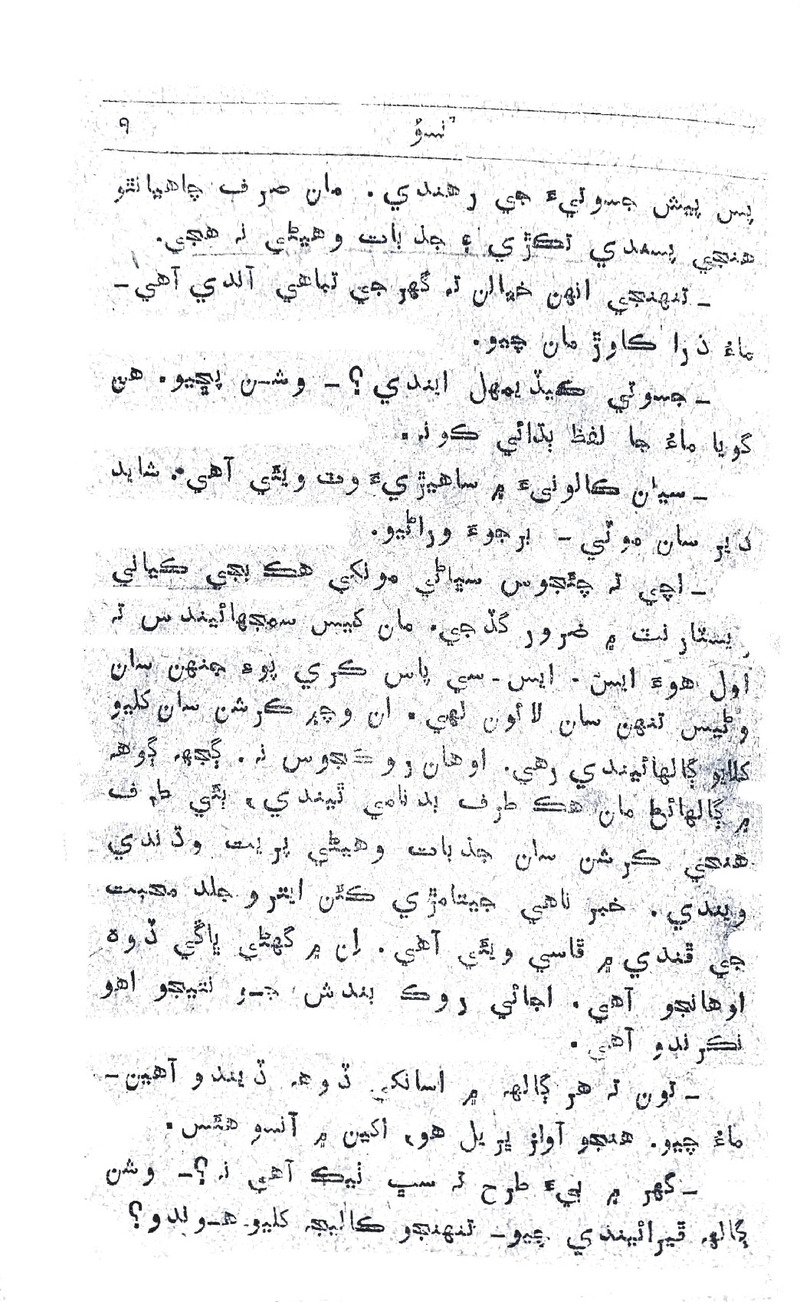 آنسو ۹
پس پيش جسوتيءَ جي رهندي. مان صرف چاهيان ٿو
هنجي پسندي تڪڙي ۽ جذبات وهيڻي نہ هجي.
_ تنهنجي انهن خيالن تہ گهر جي تباهي آندي آهي_
ماءُ ذرا ڪاوڙ مان چيو.
_ جسوتي ڪيڏيمهل ايندي؟ _ وشن پڇيو. هن
گويا ماءُ جا لفظ ٻڌائي ڪونہ.
_ سيان ڪالونيءَ ۾ ساهيڙيءَ وٽ ويئي آهي. شايد
دير سان موٽي _ برجوءَ وراڻيو.
_ اچي تہ چئجوس سڀاڻي مونکي هڪ بجي ڪيفاني
ريسٽارنٽ ۾ ضرور گڏجي. مان کيس سمجهائيندس تہ
اول هوءَ ايس. ايس_سي پاس ڪري پوءِ جنهن سان
وڻيس تنهن سان لائون لهي. ان وچ۾ ڪرشن سان کليو
کلايو ڳالهائيندي رهي. اوهان روڪجوس نہ. ڳجهہ ڳوهہ
۾ ڳالهائڻ مان هڪ طرف بدنامي ٿيندي، ٻئي طرف
هنجي ڪرشن سان جذبات وهيڻي پريت وڌندي
ويندي. خبر ناهي جيتامڙي ڪئن ايترو جلد محبت
جي ڦندي ۾ ڦاسي ويئي آهي. اِن ۾ گهڻي ڀاڱي ڏوهہ
اوهانجو آهي. اجائي روڪ بندش جو نتيجو اهو
نڪرندو آهي.
_ تون تہ هر ڳالهہ ۾ اسانکي ڏوهہ ڏيندو آهين_
ماءُ چيو. هنجو آواز ڀريل هو، اکين ۾ آنسو هئس.
_ گهر ۾ ٻيءَ طرح تہ سڀ ٺيڪ آهي نہ؟ _ وشن
ڳالهہ ڦيرائيندي چيو_ تنهنجو ڪاليج کليو هوندو؟